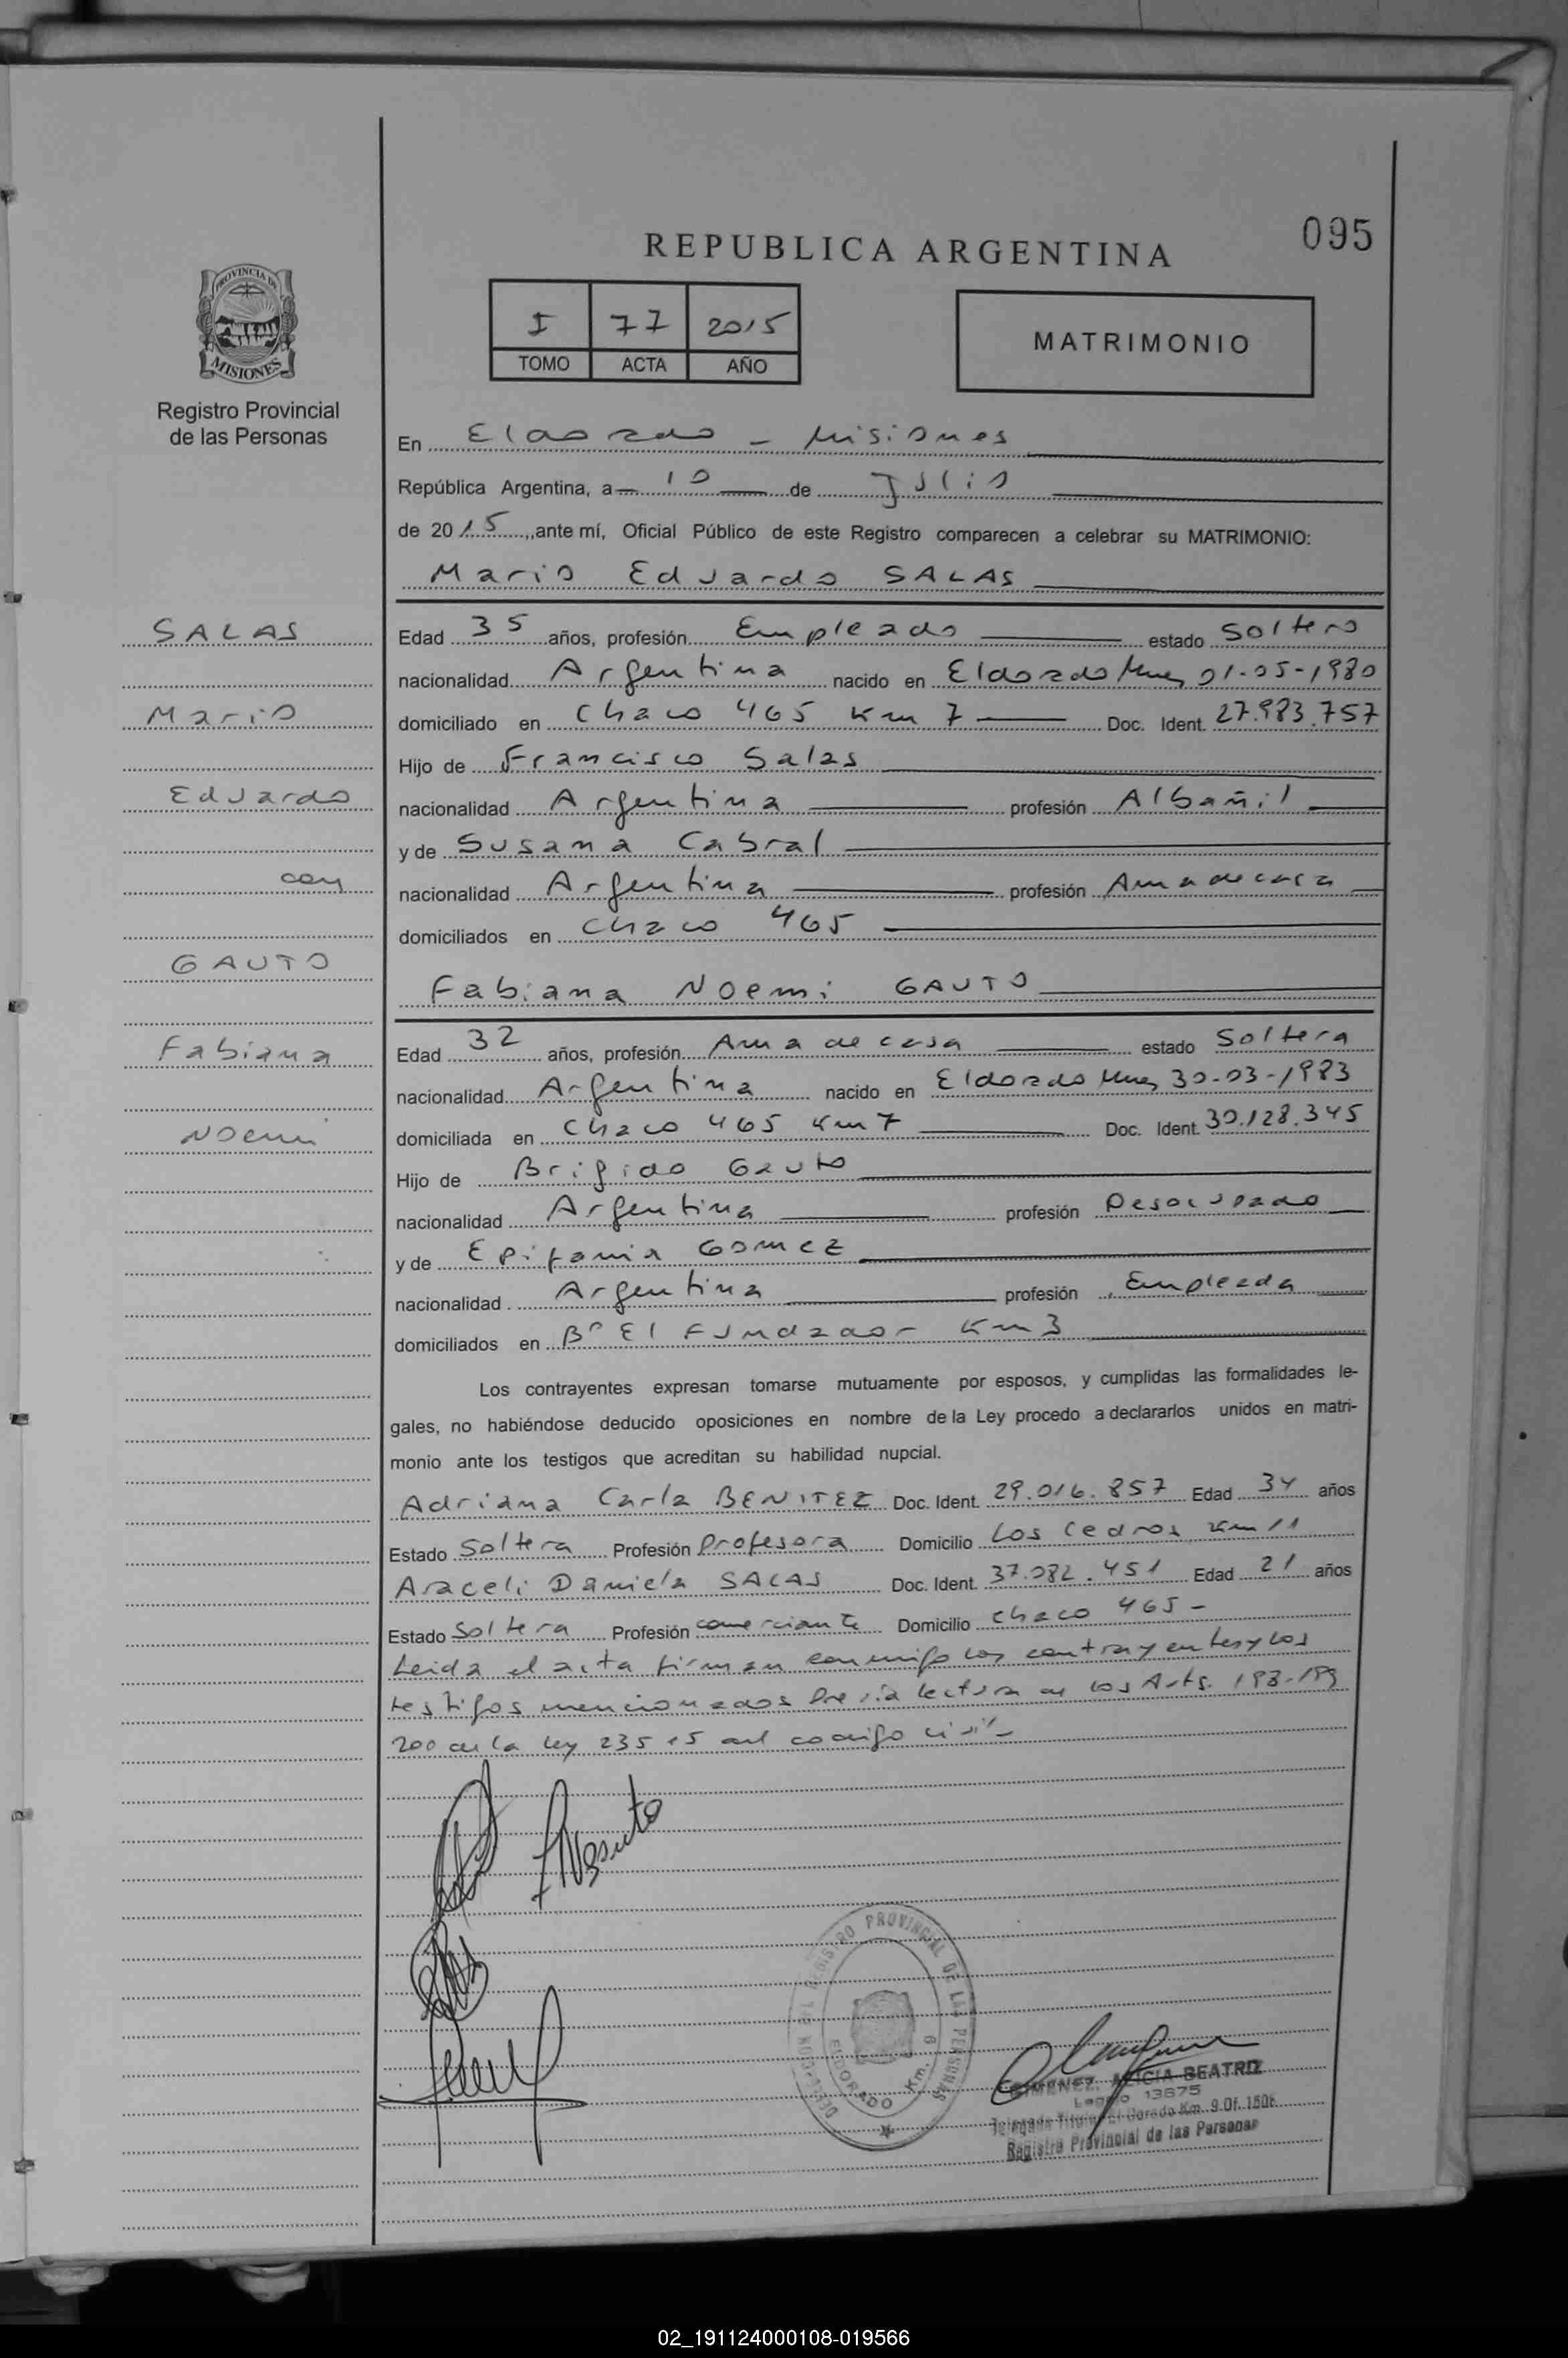 095
REPUBLICA ARGENTINA
I 77 2015
TOMO ACTA AÑO
MATRIMONIO
PROVINCIA DE
MISIONES
Registro Provincial
de las Personas
En Eldorado - Misiones
República Argentina, a 10 de Julio
de 2015, ante mí, Oficial Público de este Registro comparecen a celebrar su MATRIMONIO:
Mario Eduardo SALAS
SALAS
Mario
Eduardo
con
GAUTO
Fabiana
Noemi
Edad 35 años, profesión Empleado estado Soltero
nacionalidad Argentina nacido en Eldorado Mnes 01-05-1980
domiciliado en Chaco 465 Km 7 Doc. Ident. 27.983.757
Hijo de Francisco Salas
nacionalidad Argentina profesión Albañil
y de Susana Cabral
nacionalidad Argentina profesión Ama de casa
domiciliados en Chaco 465
Fabiana Noemi GAUTO
Edad 32 años, profesión Ama de casa estado Soltera
nacionalidad Argentina nacido en Eldorado Mnes 30-03-1983
domiciliada en Chaco 465 Km 7 Doc. Ident. 30.128.345
Hijo de Brigido Gauto
nacionalidad Argentina profesión Desocupado
y de Epifania Gomez
nacionalidad Argentina profesión Empleada
domiciliados en Bº El Fundador Km 3
Los contrayentes expresan tomarse mutuamente por esposos, y cumplidas las formalidades le-
gales, no habiéndose deducido oposiciones en nombre de la Ley procedo a declararlos unidos en matri-
monio ante los testigos que acreditan su habilidad nupcial.
Adriana Carla BENITEZ Doc. Ident. 29.016.857 Edad 34 años
Estado Soltera Profesión Profesora Domicilio Los Cedros Km 11
Araceli Daniela SALAS Doc. Ident. 37.082.451 Edad 21 años
Estado Soltera Profesión comerciante Domicilio Chaco 465 -
Leida el acta firman conmigo los contrayentes y los
testigos mencionados previa lectura de los Arts. 198-199
200 de la ley 23515 del codigo civil-
REGISTRO PROVINCIAL DE LAS PERSONAS
ELDORADO Km. 9
GIMENEZ, ALICIA BEATRIZ
Legajo 13675
Delegada Titular Eldorado Km. 9 Of. 1505
Registro Provincial de las Personas
02_191124000108-019566